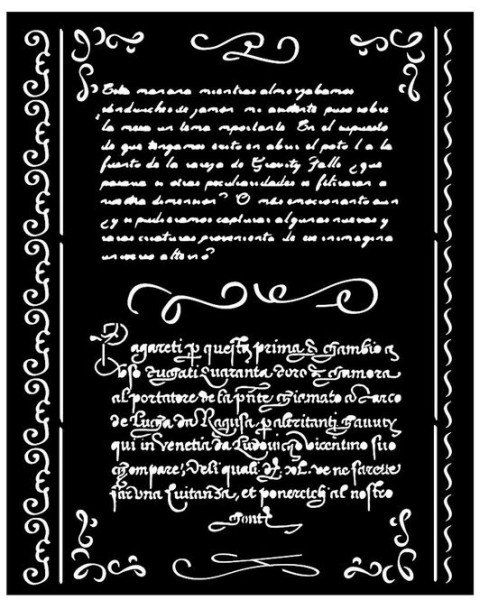 Esta manana mientras almorzabamos
sandwiches de jamon mi asistente puso sobre
la mesa un tema mportante En el supuesto
de que tengamos exito en abrir el
fuente de la rareza de Gravity Falls ¿que
pasaria si otras peculiaridades se filtraran a
nuestra dimension? O mas emocionante aun
¿y si pudieramos capturar algunas nuevas y
raras criaturas proveniente de ese inimagina
universo alterno?
Pagareti p questa prima di Gambio a
Ducati Quaranta doro di Camera
al portatore de la chiamato Marco
de Lucha da Ragusa,
qui in Venetia da Ludovico vicentino suo
Compare; Deli quali ve ne farete
far una Quitanza, et ponerete al nostro
Conto